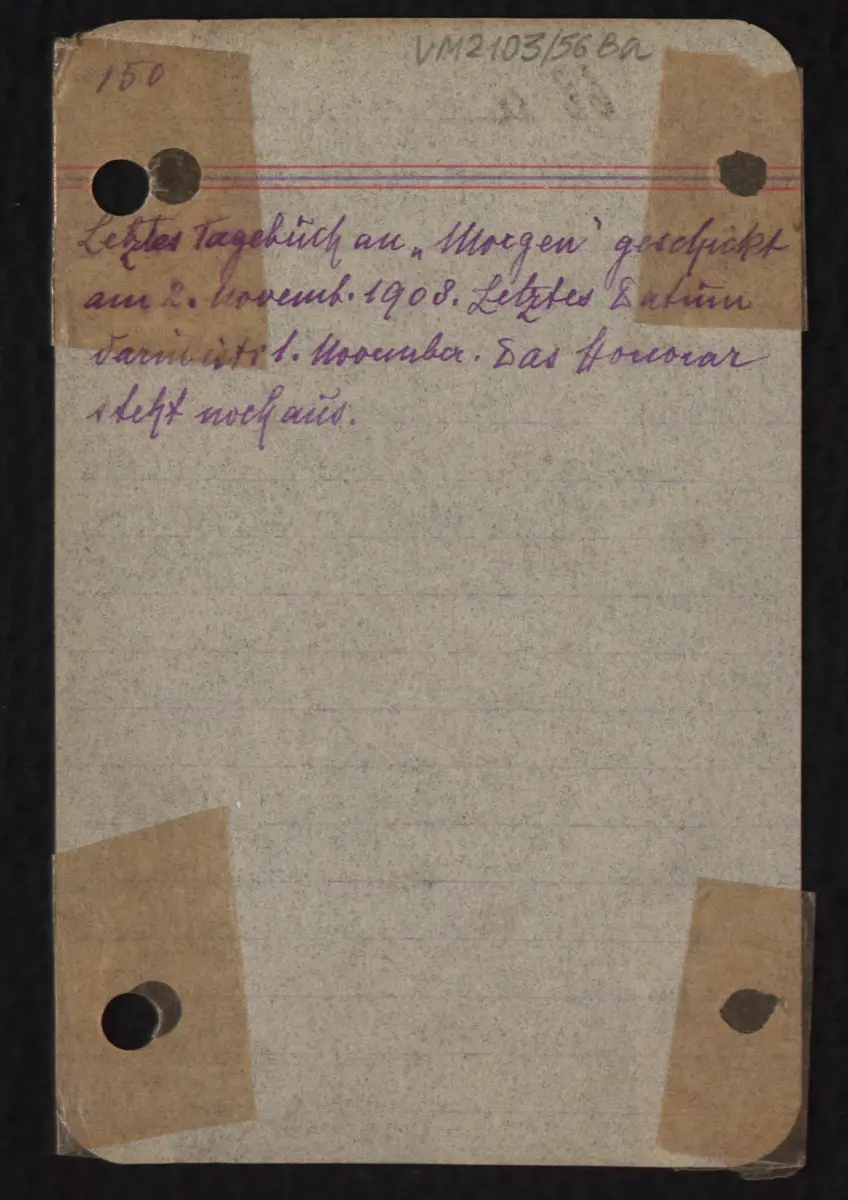 VM2103/56 Ba
150
Letztes Tagebuch an „Morgen" geschickt
am 2. Novemb. 1908. Letztes Datum
darin ist 1. November. Das Honorar
steht noch aus.